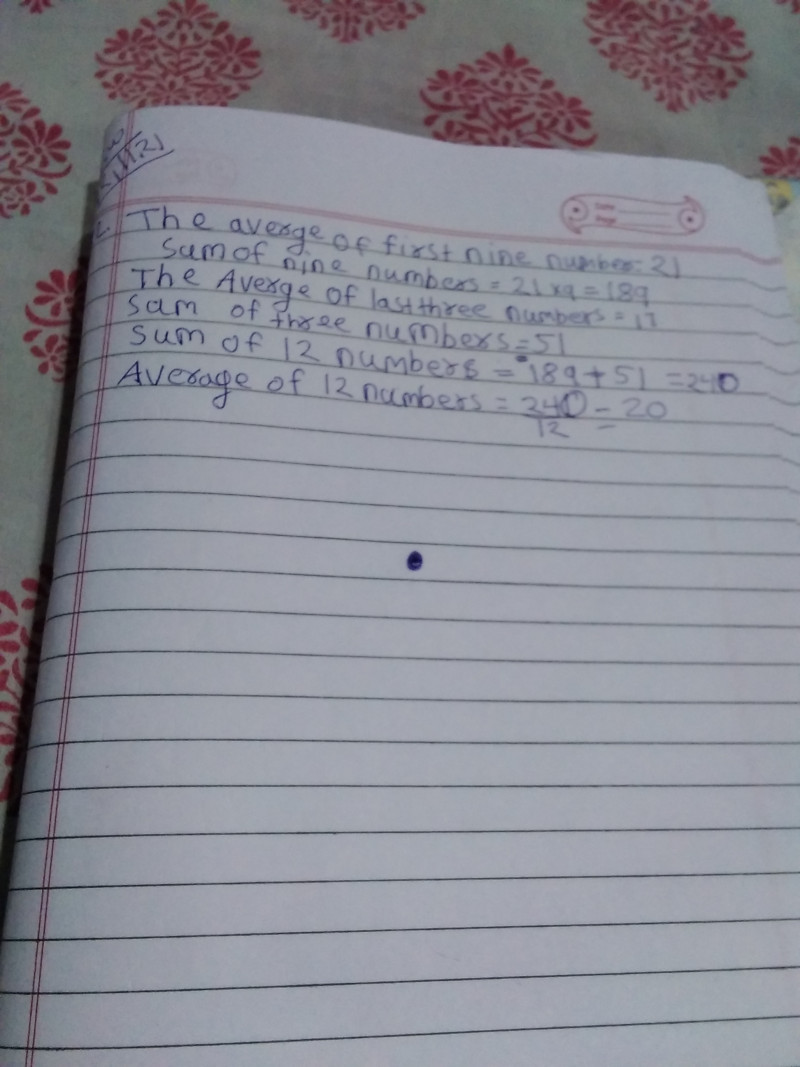 The averge of first nine number = 21
Sum of nine numbers = 21 x 9 = 189
The Averge of last three numbers = 17
Sam of three numbers = 51
Sum of 12 numbers = 189 + 51 = 240
Average of 12 numbers = 240/12 = 20